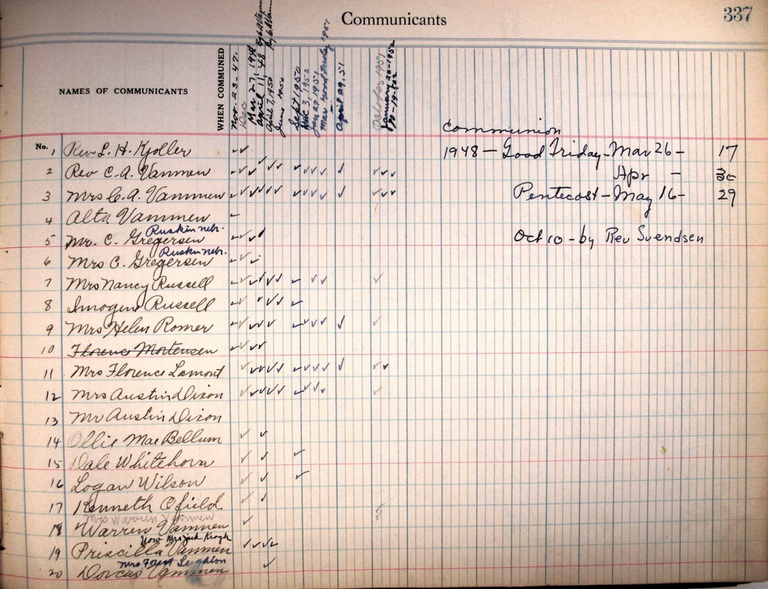 Communicants
337
NAMES OF COMMUNICANTS
WHEN COMMUNED
Nov. 23-47.
Dec
Mar 27, 1948
April 11, 48
June 1950
Sept 1950
Dec 3, 1950
Jan 29, 1951
April 29. 51
January 20-1952
Communion
1948 - Good Friday - Mar 26 - 17
Apr - 30
Pentecost - May 16 - 29
Oct 10 - by Rev Svendsen
No. 1 Rev L. H. Kjoller
2 Rev C. A. Vammen
3 Mrs C. A. Vammen
4 Alta Vammen
Ruskin Nebr.
5 Mr. C. Gregersen
Ruskin Nebr.
6 Mrs C. Gregersen
7 Mrs Nancy Russell
8 Imogene Russell
9 Mrs Helen Romer
10 Florence Mortensen
11 Mrs Florence Lamont
12 Mrs Austin Dixon
13 Mr Austin Dixon
14 Ollie Mae Bellum
15 Dale Whitehorn
16 Logan Wilson
17 Kenneth Ofield
18 Warren Vammen
Now Mrs Jack Krogh
19 Priscilla Vammen
Mrs Leighton
20 Dorcas Vammen